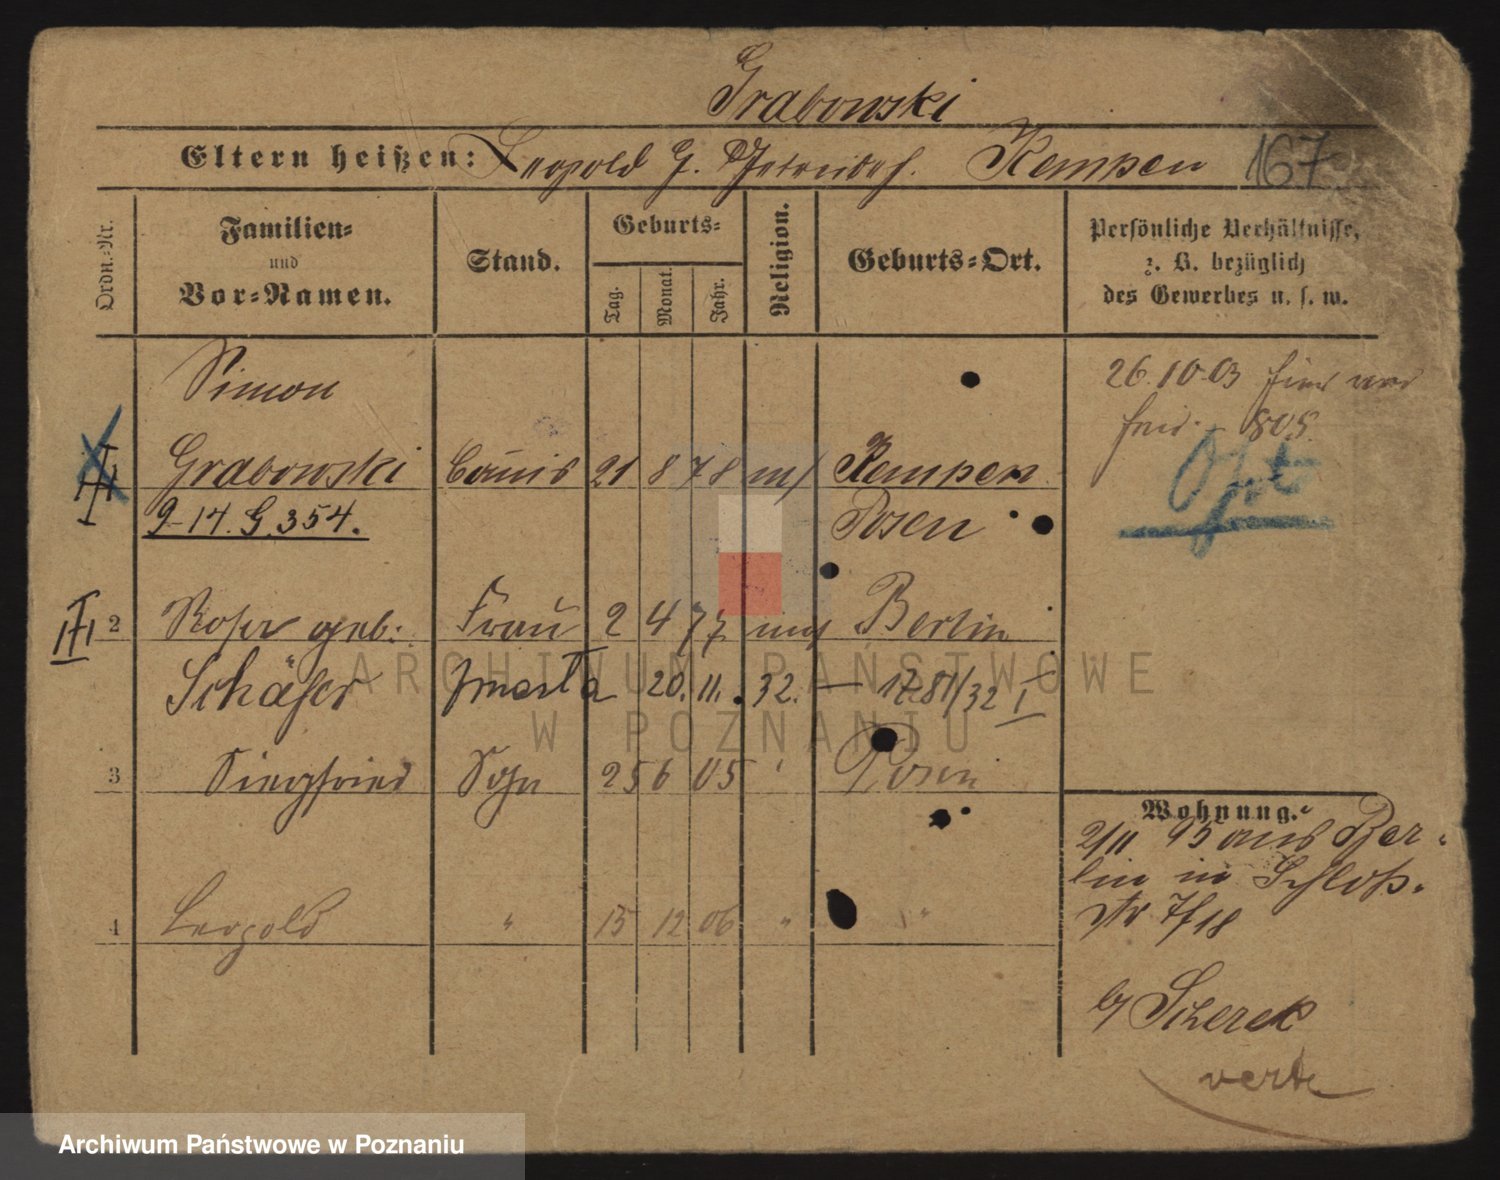 Grabowski
Eltern heißen: Leopold G. Kempen 167
Ordn.-Nr.
Familien- und Vor-Namen.
Stand.
Geburts-
Tag. Monat. Jahr.
Religion.
Geburts-Ort.
Persönliche Verhältnisse,
z. B. bezüglich
des Gewerbes u. s. w.
Simon
26.10.03
frei. - 805.
Grabowski Comis 21 8 78 Kempen
9-14. G. 354. Posen
2 geb: Frau 2 4 77 Berlin
Schäfer 20. 11. 32. — 1781/32 I
3 Siegfried Sohn 25 6 05 Posen
Wohnung.
2/11 95 aus Ber-
lin in Schloß-
str 7/18
4 Leopold " 15 12 06 " "
b/ Scherek
verte
ARCHIWUM PAŃSTWOWE
W POZNANIU
Archiwum Państwowe w Poznaniu